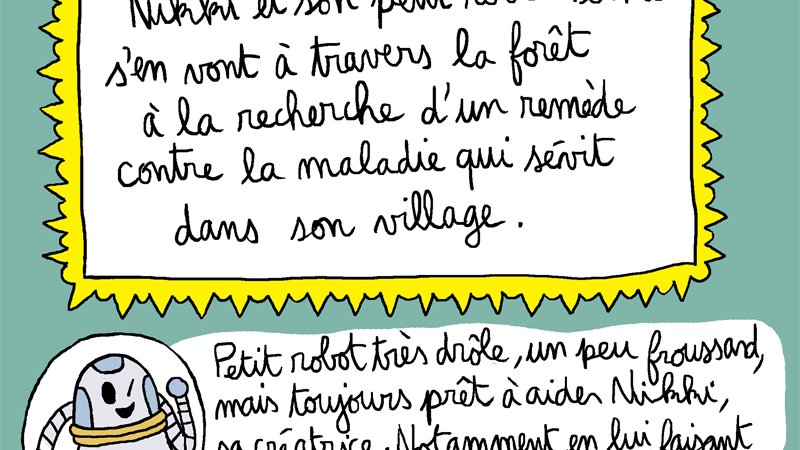 Nikki et son petit robot
s'en vont à travers la forêt
à la recherche d'un remède
contre la maladie qui sévit
dans son village.
Petit robot très drôle, un peu froussard,
mais toujours prêt à aider Nikki,
sa créatrice. Notamment en lui faisant